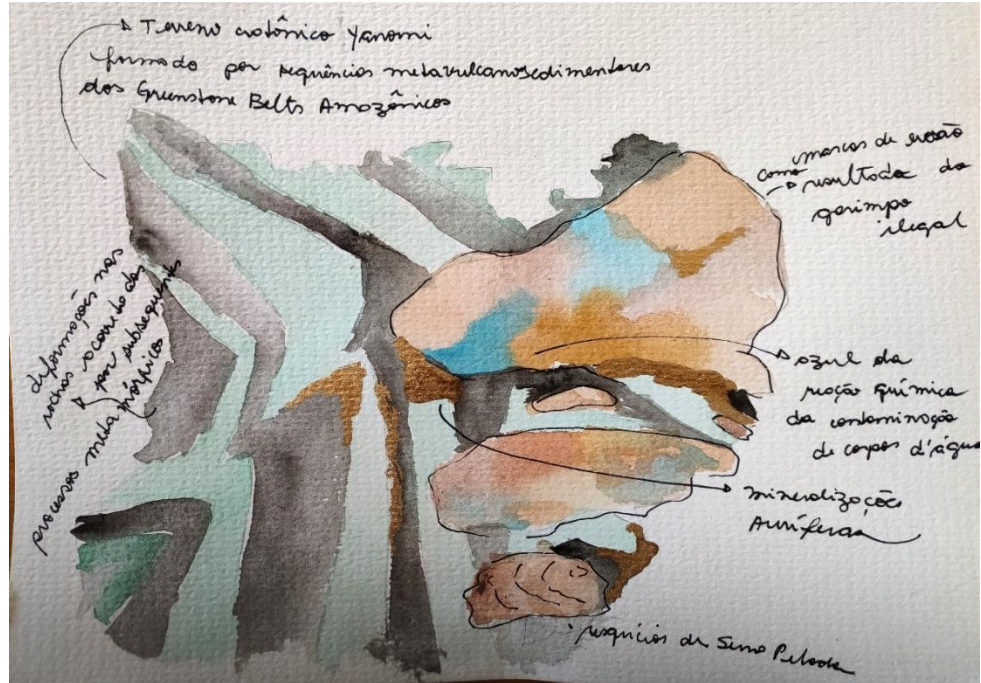 Terreno cratônico Yanomi
formado por sequências metavulcanosedimentares
dos Greenstone Belts Amazônicos
marcas de erosão
como resultado do
garimpo
ilegal
deformações nas
rochas ocorrido das
por subsequentes
processos metamórficos
azul da
reação química
da contaminação
de corpos d'água
mineralizações
Auríferas
resquícios de Serra Pelada